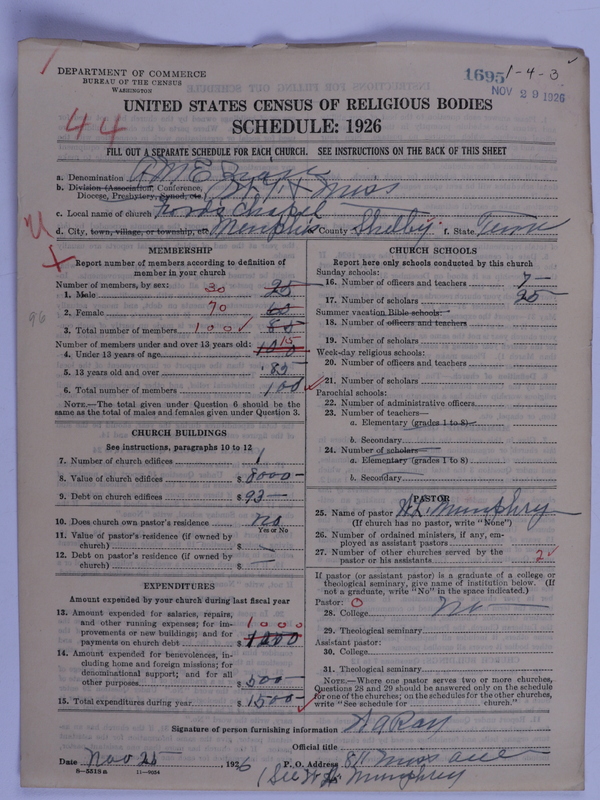 DEPARTMENT OF COMMERCE
BUREAU OF THE CENSUS
WASHINGTON
1695 1-4-3
NOV 29 1926
UNITED STATES CENSUS OF RELIGIOUS BODIES
SCHEDULE: 1926
44
FILL OUT A SEPARATE SCHEDULE FOR EACH CHURCH. SEE INSTRUCTIONS ON THE BACK OF THIS SHEET
a. Denomination A.M.E. Zion
b. Division (Association, Conference, Diocese, Presbytery, Synod, etc. W. T. & Miss
c. Local name of church Chapel
d. City, town, village, or township, etc. Memphis e. County Shelby f. State Tenn
MEMBERSHIP
Report number of members according to definition of
member in your church
Number of members, by sex:
1. Male 30 25
2. Female 70 60
3. Total number of members 100 85
Number of members under and over 13 years old:
4. Under 13 years of age 15
5. 13 years old and over 85
6. Total number of members 100
NOTE.—The total given under Question 6 should be the
same as the total of males and females given under Question 3.
96
CHURCH BUILDINGS
See instructions, paragraphs 10 to 12
7. Number of church edifices 1
8. Value of church edifices $ 8000—
9. Debt on church edifices $ 93—
10. Does church own pastor's residence no
Yes or No
11. Value of pastor's residence (if owned by
church) $ —
12. Debt on pastor's residence (if owned by
church) $ —
EXPENDITURES
Amount expended by your church during last fiscal year
13. Amount expended for salaries, repairs,
and other running expenses; for im-
provements or new buildings; and for
payments on church debt $ 1000
14. Amount expended for benevolences, in-
cluding home and foreign missions; for
denominational support; and for all
other purposes $ 500—
15. Total expenditures during year $ 1500—
CHURCH SCHOOLS
Report here only schools conducted by this church
Sunday schools:
16. Number of officers and teachers 7—
17. Number of scholars 25
Summer vacation Bible schools:
18. Number of officers and teachers
19. Number of scholars
Week-day religious schools:
20. Number of officers and teachers
21. Number of scholars
Parochial schools:
22. Number of administrative officers
23. Number of teachers—
a. Elementary (grades 1 to 8)
b. Secondary
24. Number of scholars—
a. Elementary (grades 1 to 8)
b. Secondary
PASTOR
25. Name of pastor Humphry
(If church has no pastor, write "None")
26. Number of ordained ministers, if any, em-
ployed as assistant pastors
27. Number of other churches served by the
pastor or his assistants 2
If pastor (or assistant pastor) is a graduate of a college or
theological seminary, give name of institution below. (If
not a graduate, write "No" in the space indicated.)
Pastor: 0
28. College No
29. Theological seminary
Assistant pastor:
30. College
31. Theological seminary
NOTE.—Where one pastor serves two or more churches,
Questions 28 and 29 should be answered only on the schedule
for one of the churches; on the schedules for the other churches,
write "See schedule for church."
Signature of person furnishing information Ray
Official title
Date Nov 25, 1926 P. O. Address 811 Miss ave
8—5318a 11—9054 (See Humphrey